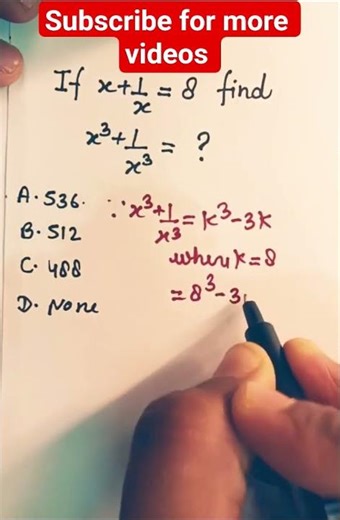 Subscribe for more
videos
If x+1/x = 8 find
x³+1/x³ = ?
A. 536.
B. 512
C. 488
D. None
∵ x³+1/x³ = k³-3k
where k = 8
= 8³-3